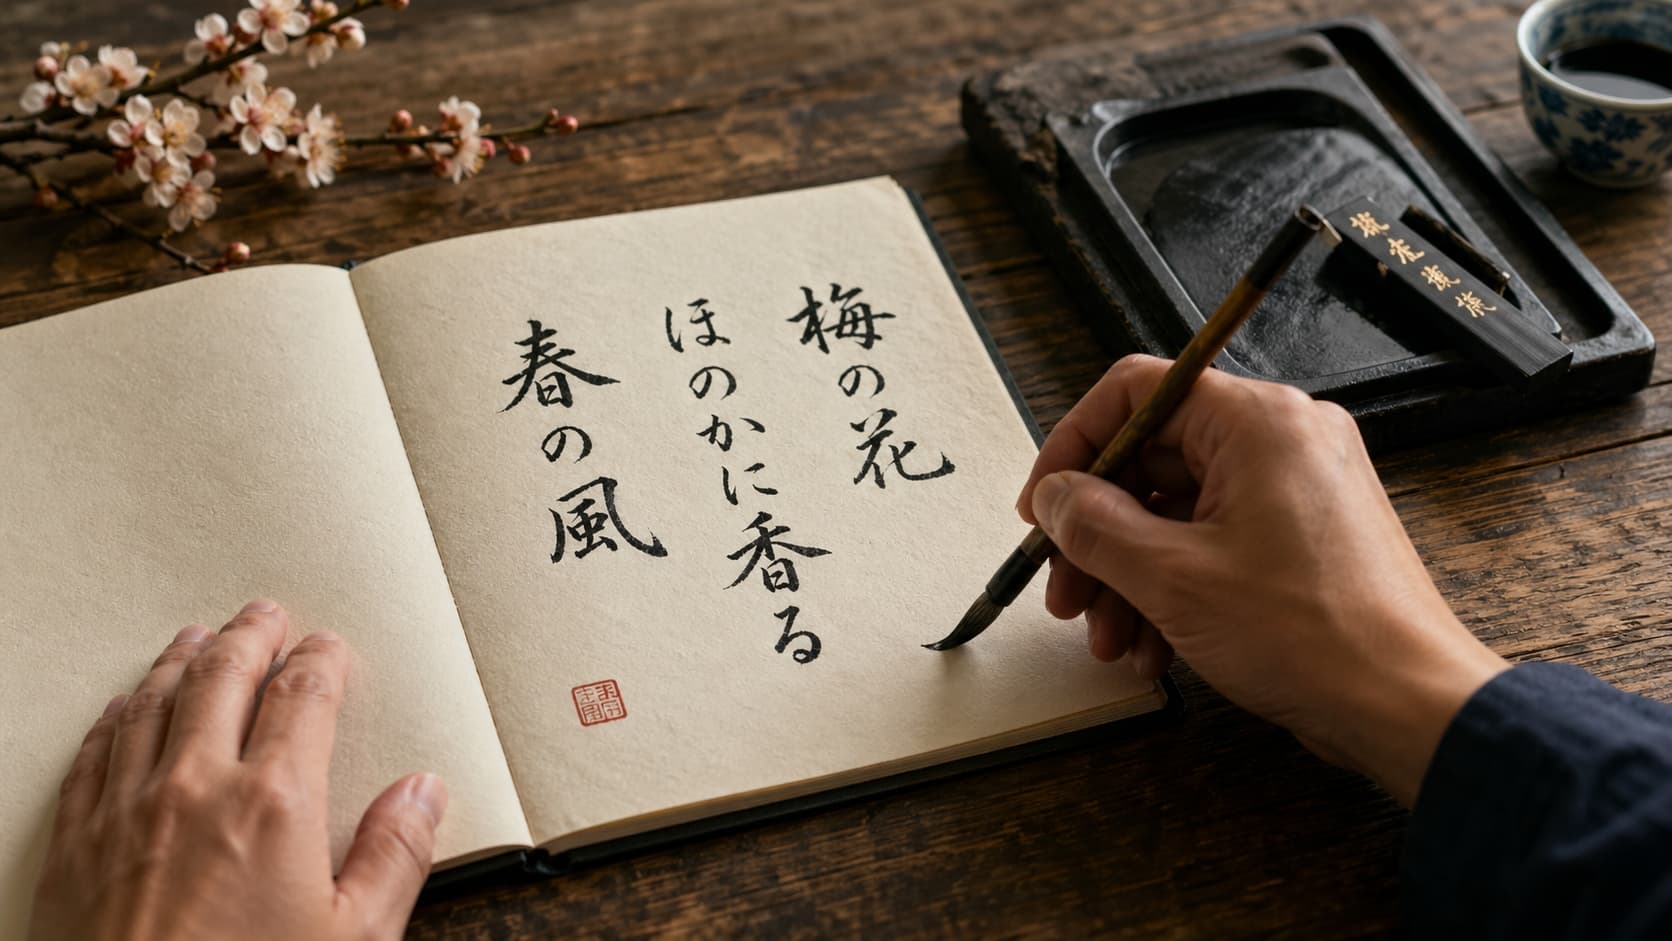 梅の花
ほのかに香る
春の風